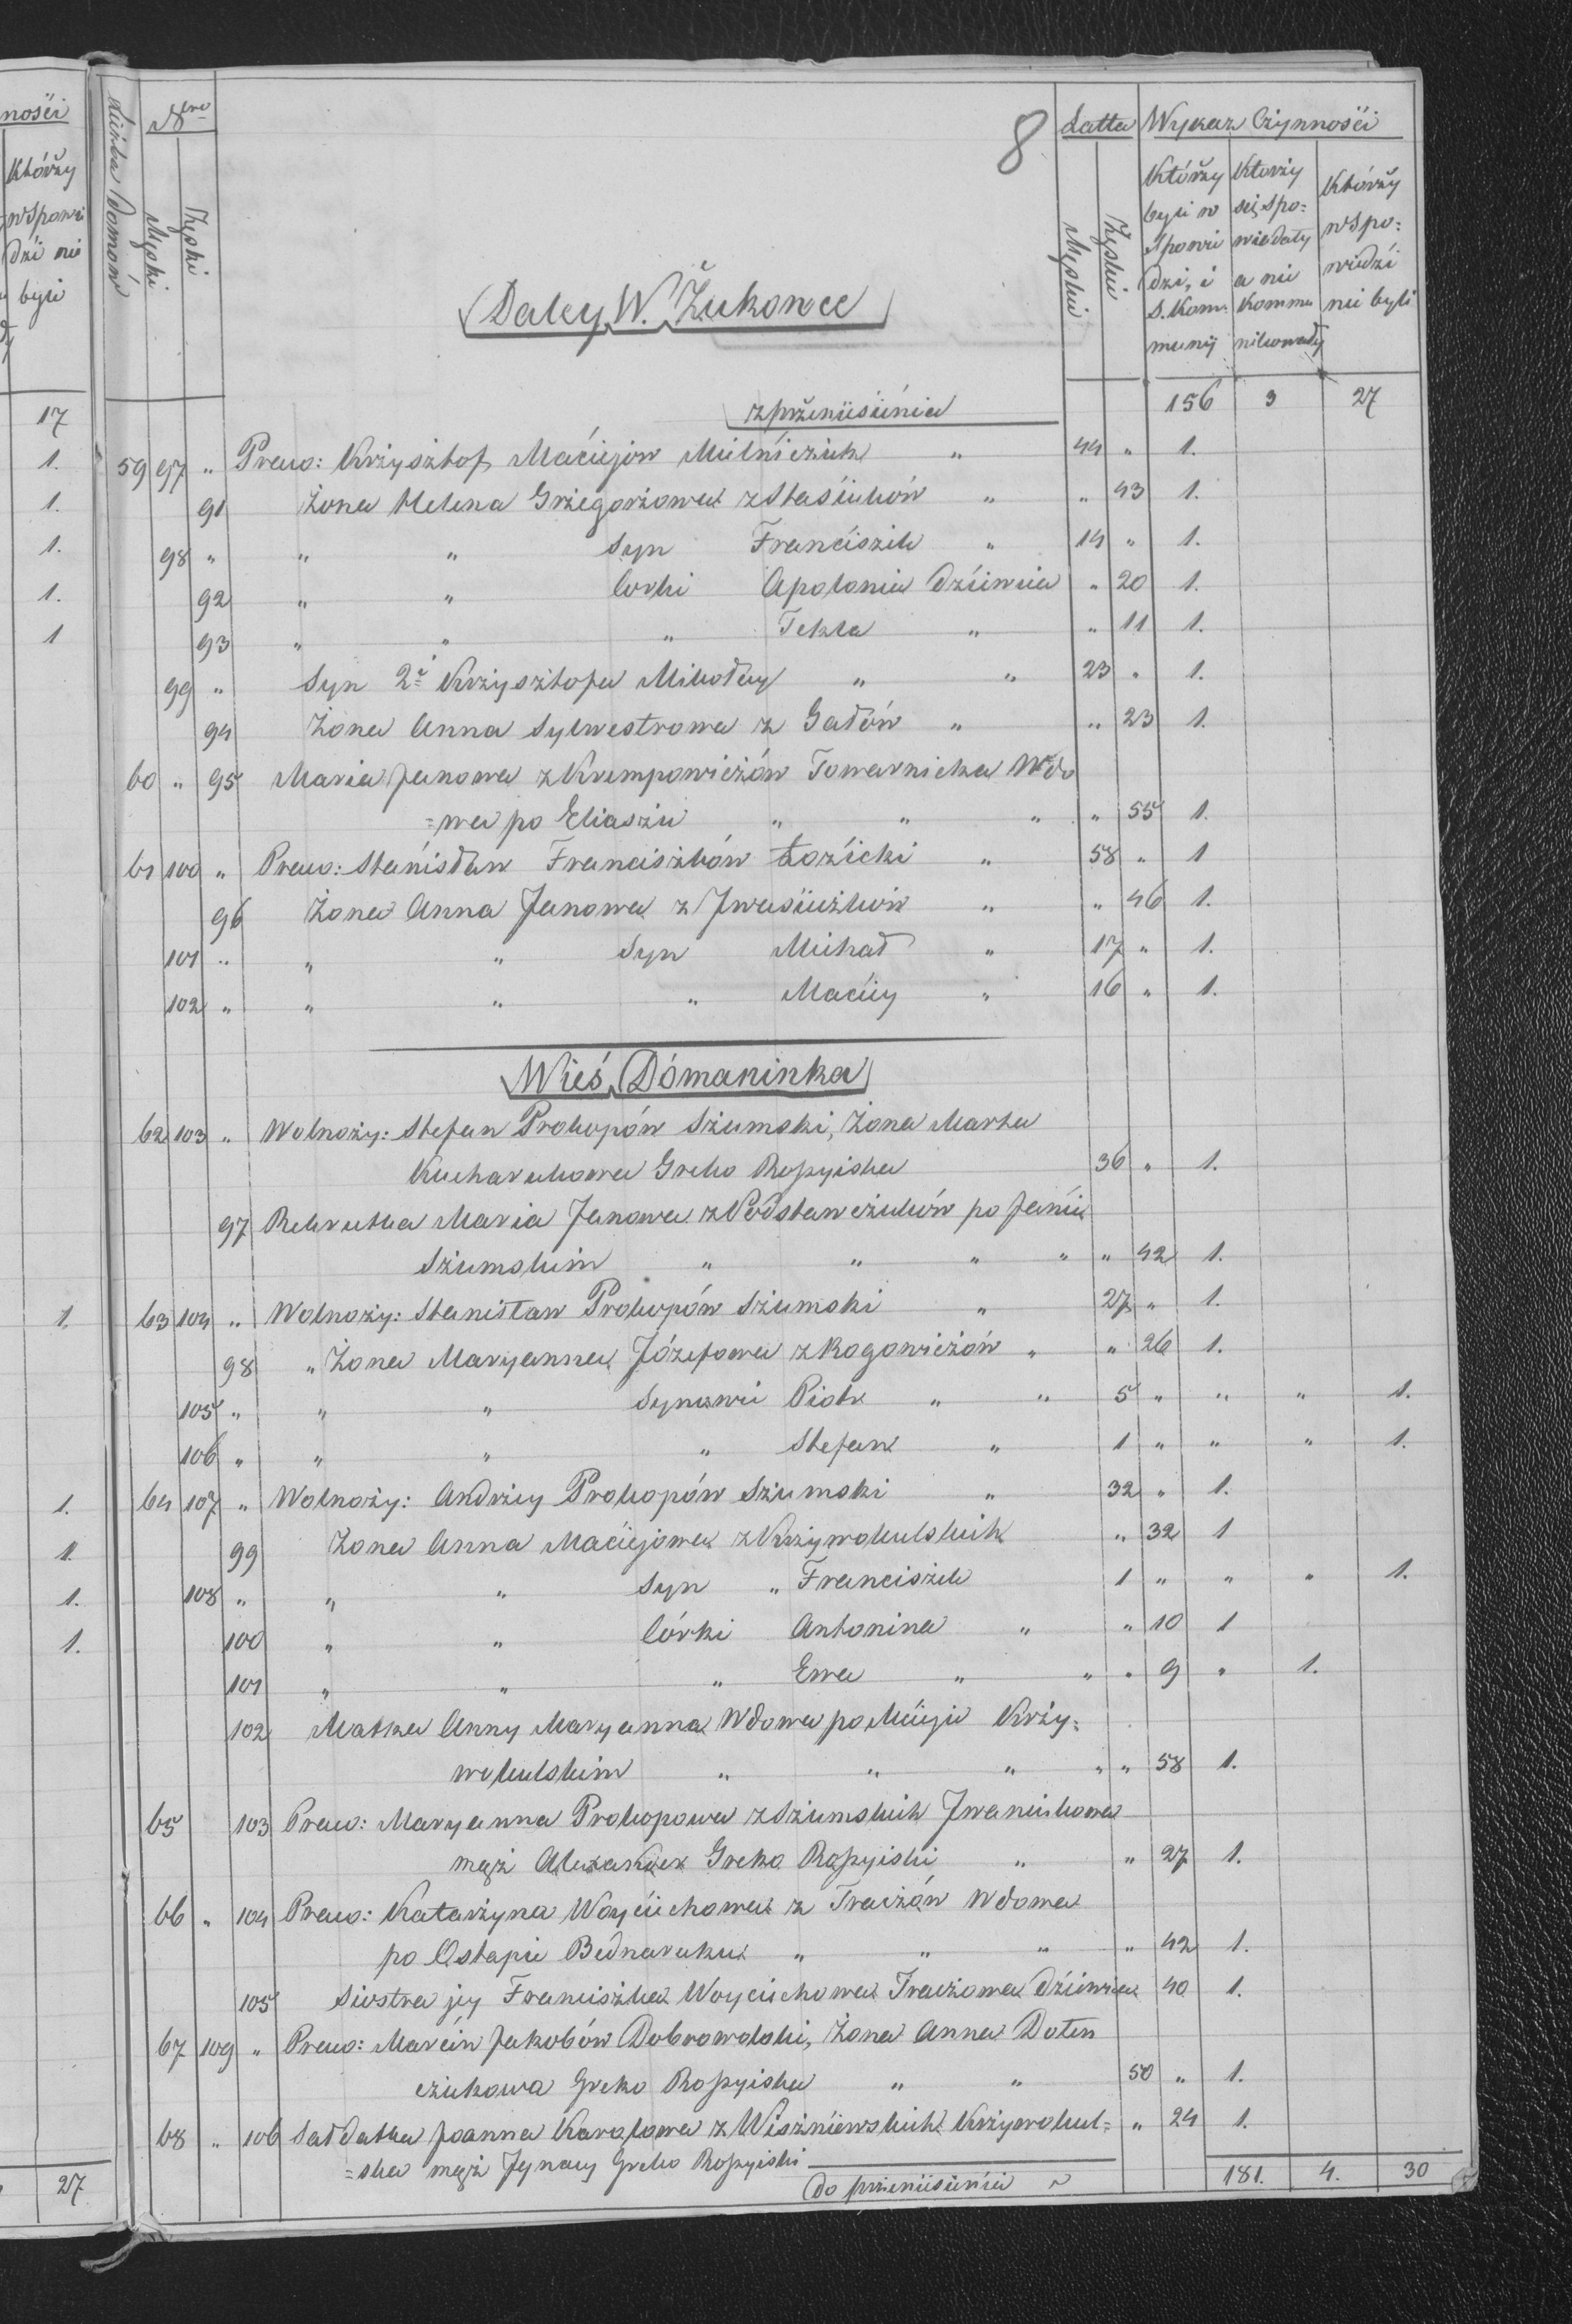 nośći
Którży
wSpowi
dźi nie
byli
17
1.
1.
1.
1.
1
1.
1.
1.
1.
1.
27
8
Liczba Domów
Nro
Męski
Żeński
Latta
Męskie
Żeńskie
Wykaz Czynnośći
Którży byli w Spowiedzi, i S. Kommunij
Ktorży się spowiedały a nie Kommunikowały
Którży wSpowiedźi nie byli
Daley W. Żukowce
z przeniesienia 156 3 27
59 97 " Prawo: Krżysżtof Maćiejow Mielnicżuk " 44 " 1.
91 Żona Helena Grżegorżowa z Stasiuków " " 43 1.
98 " " " Syn Franćiszek " 14 " 1.
92 " " Corki Apolonia Dźiewica " 20 1.
93 " " " Tekla " " 11 1.
99 " Syn 2i Krżysztofa Mikołay " " 23 " 1.
94 Żona Anna Sylwestrowa z Gałów " " 23 1.
60 " 95 Maria Janowa z Krempowicżów Towarnicka Wdo
=wa po Eliaszu " " " " 55 1.
61 100 " Prawo: Stanisław Franciszków Łoźicki " 58 " 1
96 Żona Anna Janowa z Iwasieczków " " 46 1.
101 " " " Syn Michał " 17 " 1.
102 " " " " Maćiey " 16 " 1.
Wieś Domaninka
62 103 " Wolnoży: Stefan Prokopów Szumski, Żona Marta
Kucharukowa Greko Rossyiska 36 " 1.
97 Rekrutka Maria Janowa z Podstawcżuków po Janie
Szumskim " " " " " 42 1.
63 104 " Wolnoży: Stanisław Prokopów Szumski " 27 " 1.
98 " Żona Maryanna Józefowa z Rogowicżów " " 26 1.
105 " " " Synowie Piotr " " 5 " " " 1.
106 " " " " Stefan " 1 " " " 1.
64 107 " Wolnoży: Andrżey Prokopów Szumski " 32 " 1.
99 Żona Anna Maciejowa z Krżywokulskich " 32 1
108 " " " Syn " Franciszek 1 " " " 1.
100 " " Córki Antonina " " 10 1
101 " " " Ewa " " " 9 " 1.
102 Matka Anny Maryanna Wdowa po Maćieju Krży=
wokulskim " " " " " 58 1.
65 103 Prawo: Maryanna Prokopowa z Szumskich Iwaniukowa
mąż Alexander Greko Rossyiski " " 27 1.
66 " 104 Prawo: Katarżyna Woyćiechowa z Tracżów Wdowa
po Ostapie Bednaruku " " " " 42 1.
105 Siostra jey Franciszka Woyciechowa Tracżowa Dźiewica 40 1.
67 109 " Prawo: Marćin Jakobów Dobrowolski, Żona Anna Doten
czukowa Greko Rossyiska " " 50 " 1.
68 " 106 Sałdatka Joanna Karolowa z Wiszniewskich Krżywokul= " 24 1.
=ska mąż Jgnacy Greko Rossyiski
do przeniesienia 181. 4. 30